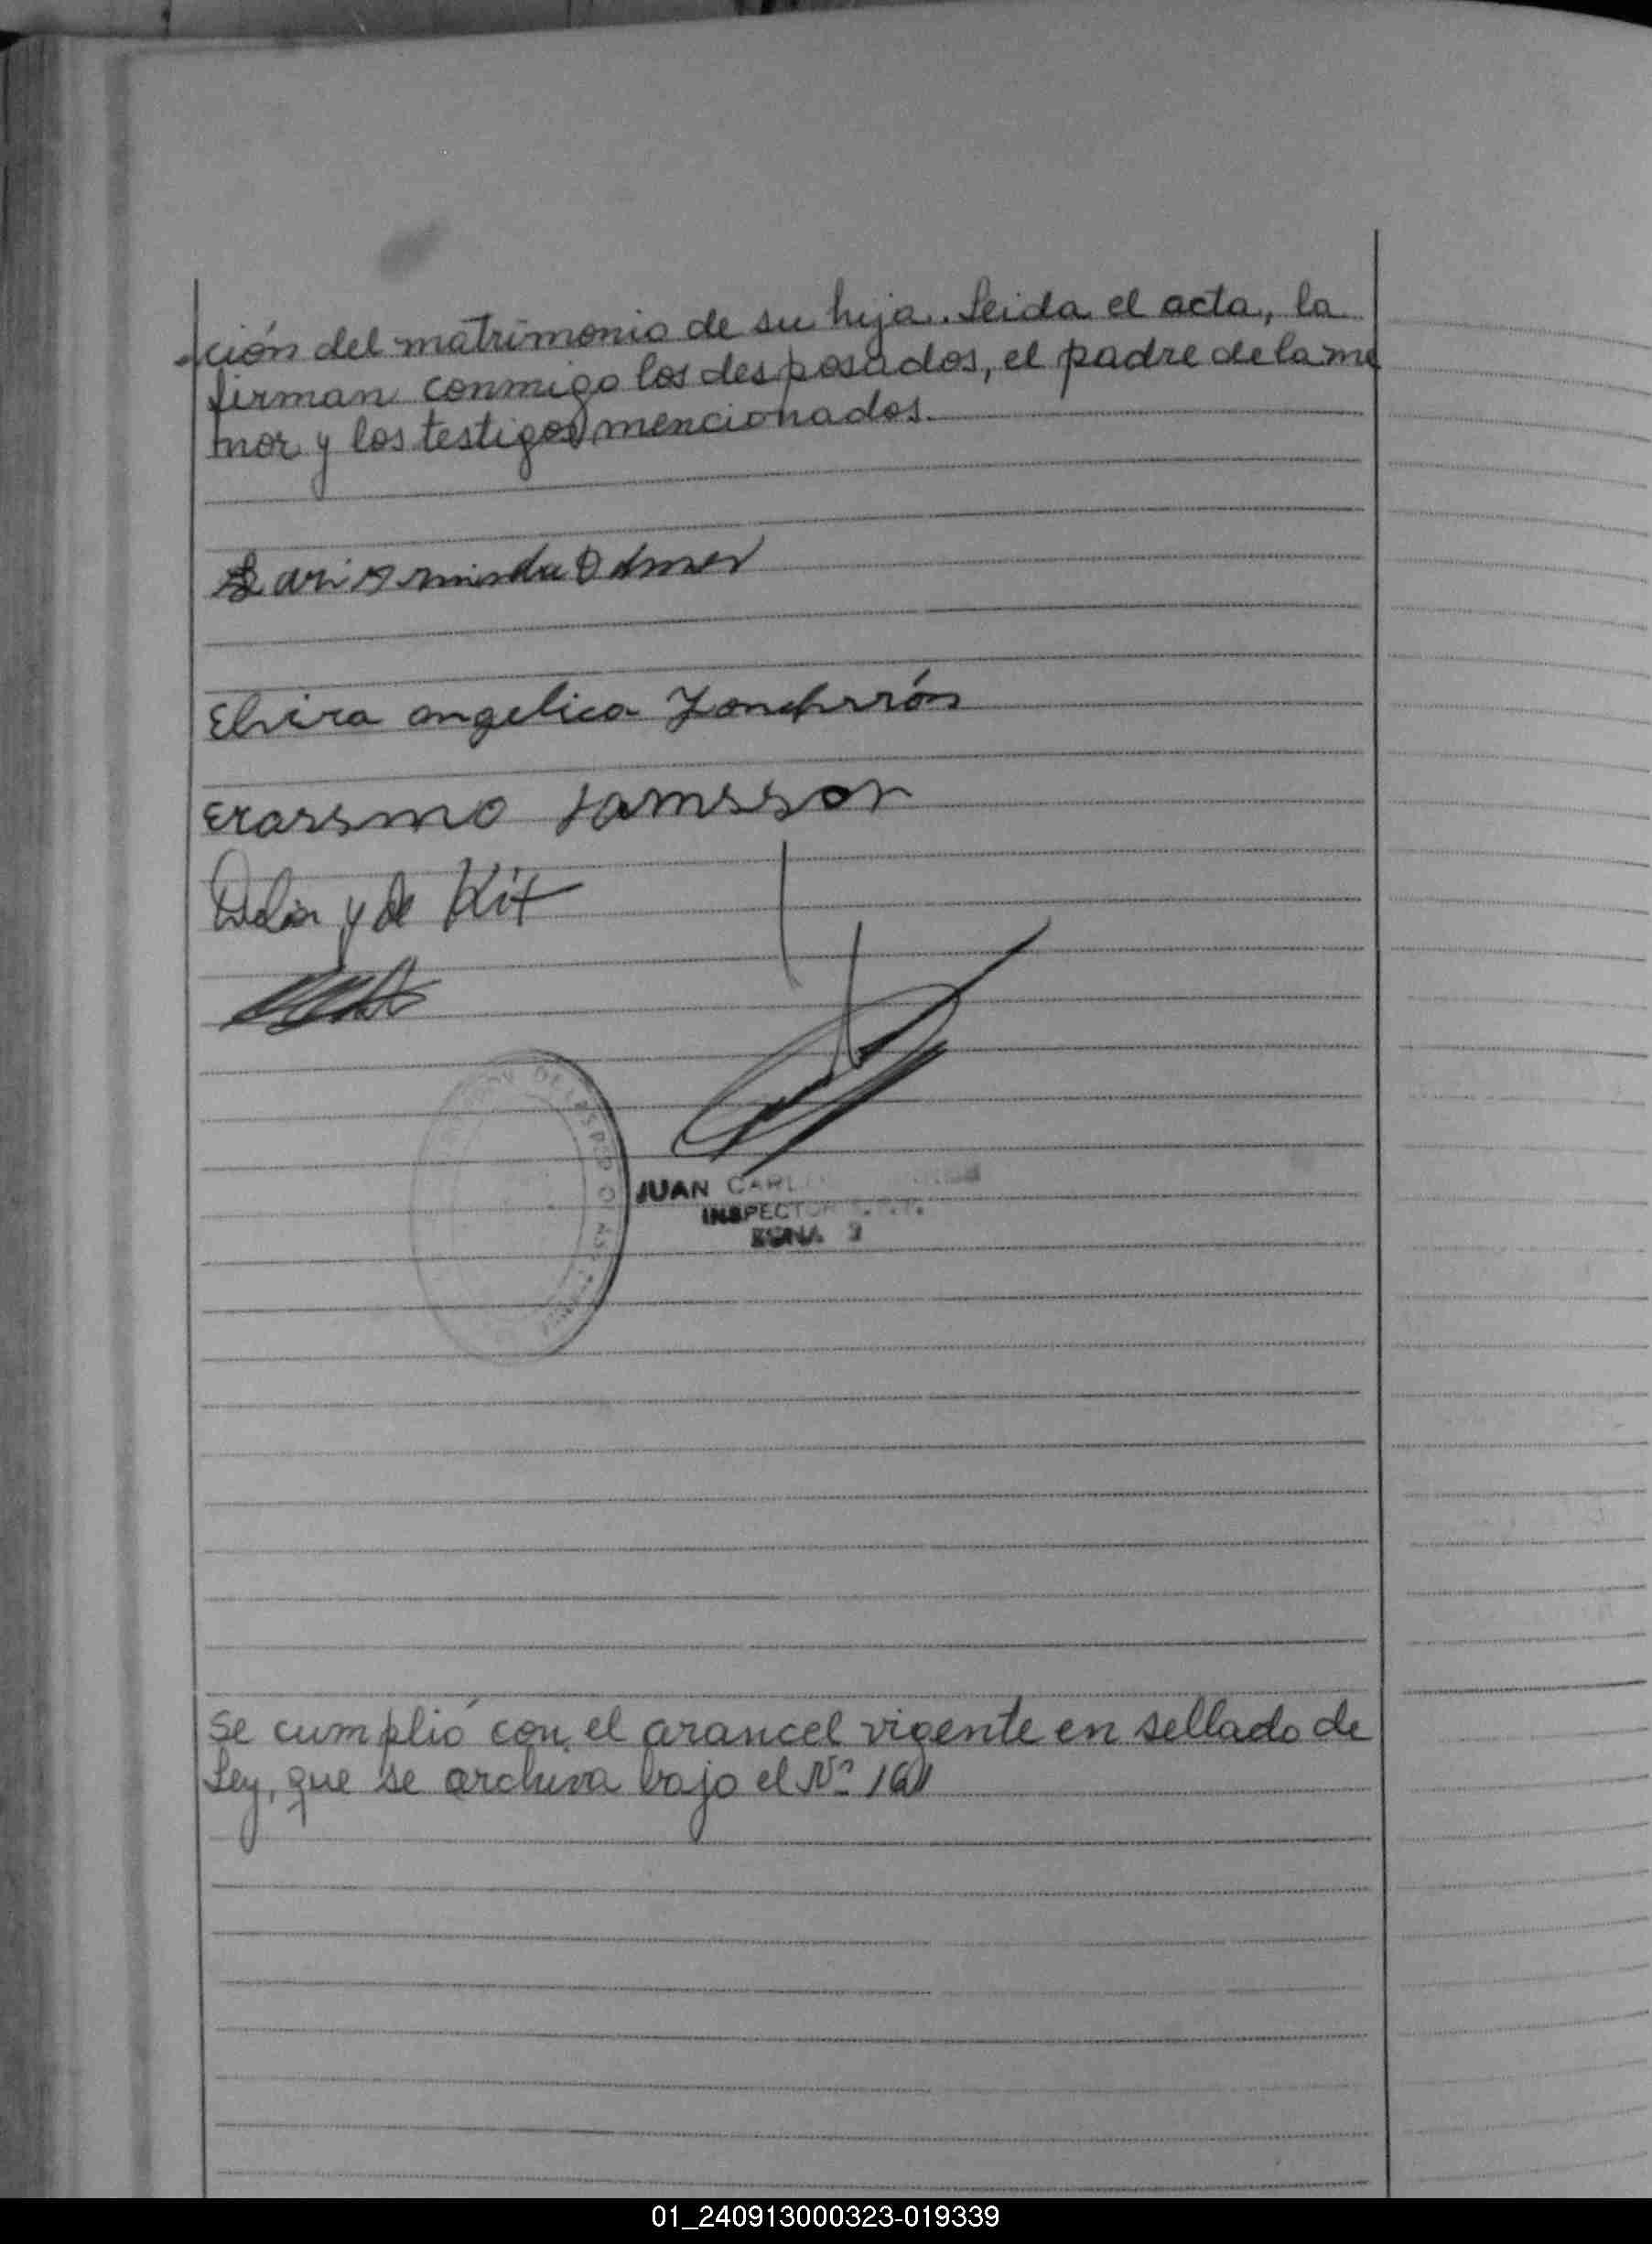 -ción del matrimonio de su hija. Leida el acta, la
firman conmigo los desposados, el padre de la me
nor y los testigos mencionados.
Elvira angelica
Erassmo
y de Kit
JUAN CARL
INSPECTOR
ZONA
Se cumplió con el arancel vigente en sellado de
Ley, que se archiva bajo el Nº
01_240913000323-019339